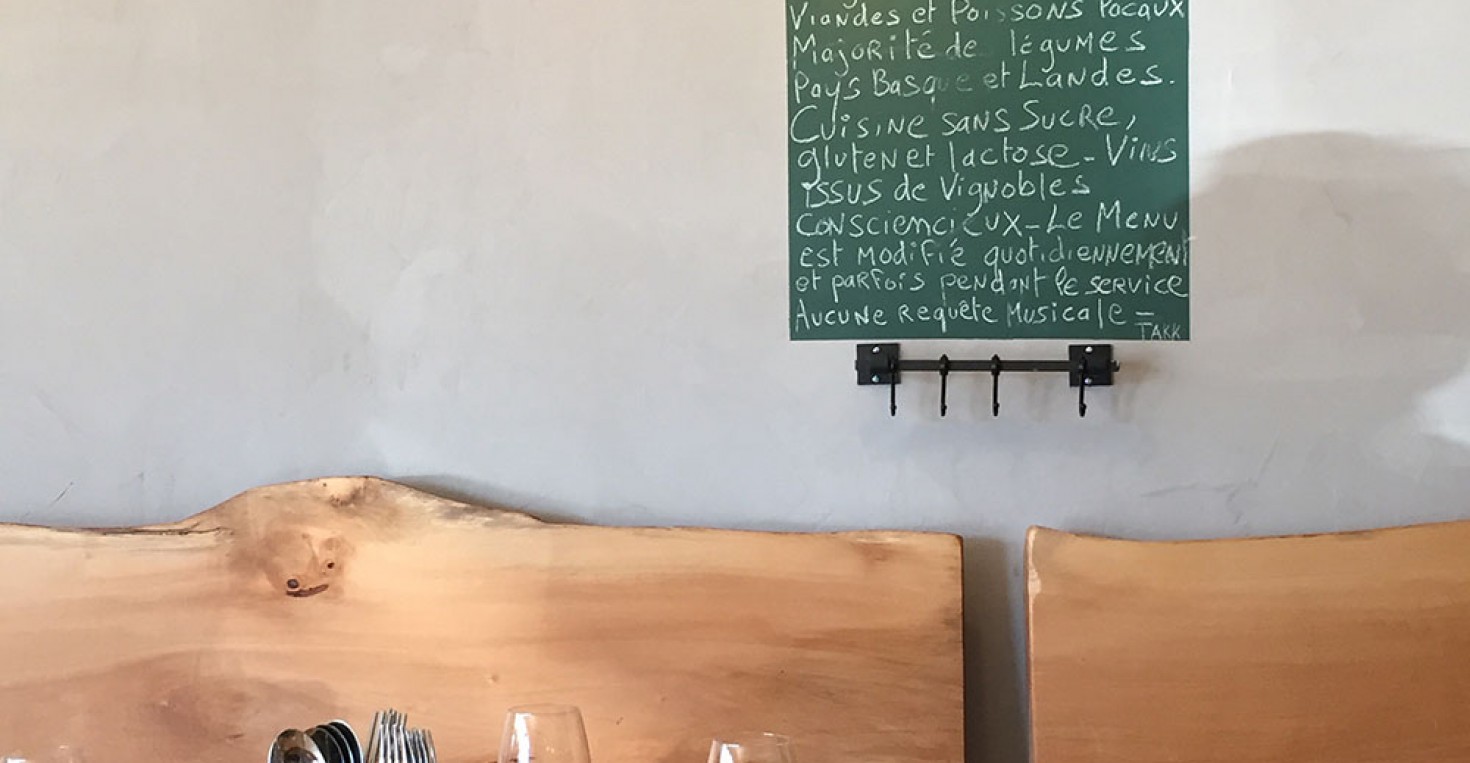 Viandes et Poissons Locaux
Majorité de légumes
Pays Basque et Landes.
Cuisine sans Sucre,
gluten et lactose - Vins
issus de Vignobles
Consciencieux - Le Menu
est modifié quotidiennement
et parfois pendant le service
Aucune Requête Musicale -
TAKK